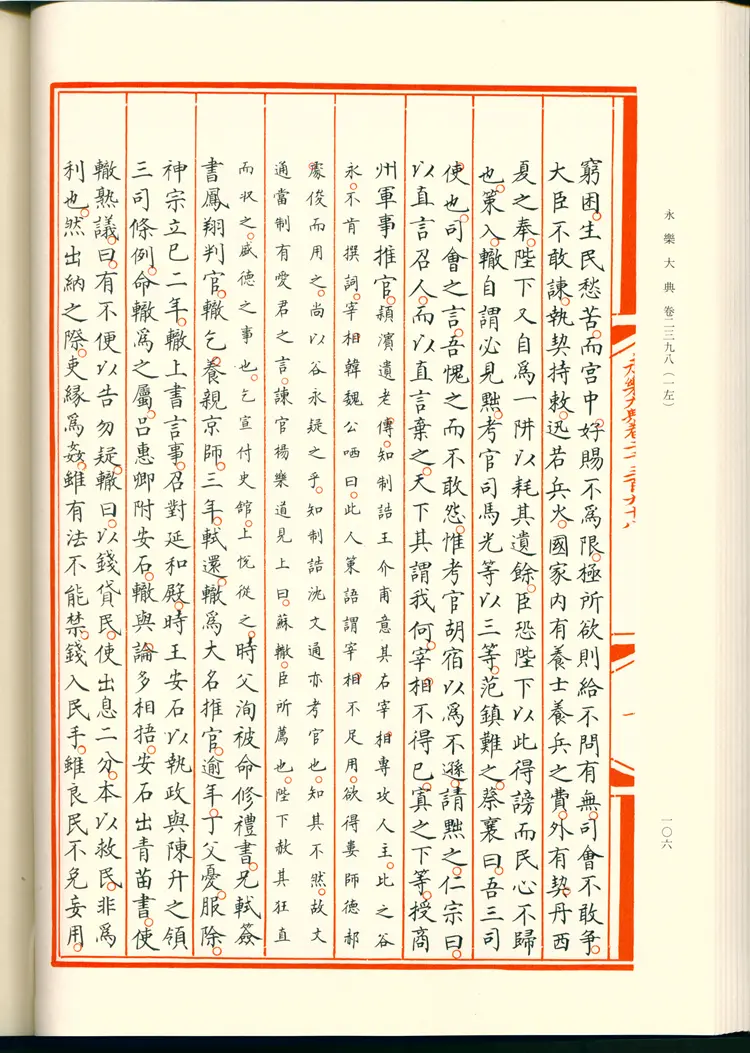 永樂大典 卷二三九八(一左)
一〇六
永樂大典卷二千三百九十八
一
窮困。生民愁苦。而宮中好賜不爲限。極所欲則給不問有無。司會不敢爭。
大臣不敢諫。執契持敕。迅若兵火。國家內有養士養兵之費。外有契丹西
夏之奉。陛下又自爲一阱以耗其遺餘。臣恐陛下以此得謗而民心不歸
也。策入。轍自謂必見黜。考官司馬光等以三等。范鎮難之。蔡襄曰。吾三司
使也。司會之言。吾愧之而不敢怨。惟考官胡宿以爲不遜。請黜之。仁宗曰。
以直言召人。而以直言棄之。天下其謂我何。宰相不得已。寘之下等。授商
州軍事推官。潁濱遺老傳。知制誥王介甫意其右宰相專攻人主。比之谷
永。不肯撰詞。宰相韓魏公哂曰。此人策語謂宰相不足用。欲得婁師德郝
處俊而用之。尚以谷永疑之乎。知制誥沈文通亦考官也。知其不然。故文
通當制有愛君之言。諫官楊樂道見上曰。蘇轍。臣所薦也。陛下赦其狂直
而收之。盛德之事也。乞宣付史館。上悅從之。時父洵被命修禮書。兄軾簽
書鳳翔判官。轍乞養親京師。三年。軾還。轍爲大名推官。逾年。丁父憂。服除。
神宗立巳二年。轍上書言事。召對延和殿。時王安石以執政與陳升之領
三司條例。命轍爲之屬。呂惠卿附安石。轍與論多相捂。安石出青苗書。使
轍熟議。曰。有不便以告勿疑。轍曰。以錢貸民。使出息二分。本以救民。非爲
利也。然出納之際。吏緣爲姦。雖有法不能禁。錢入民手。雖良民不免妄用。